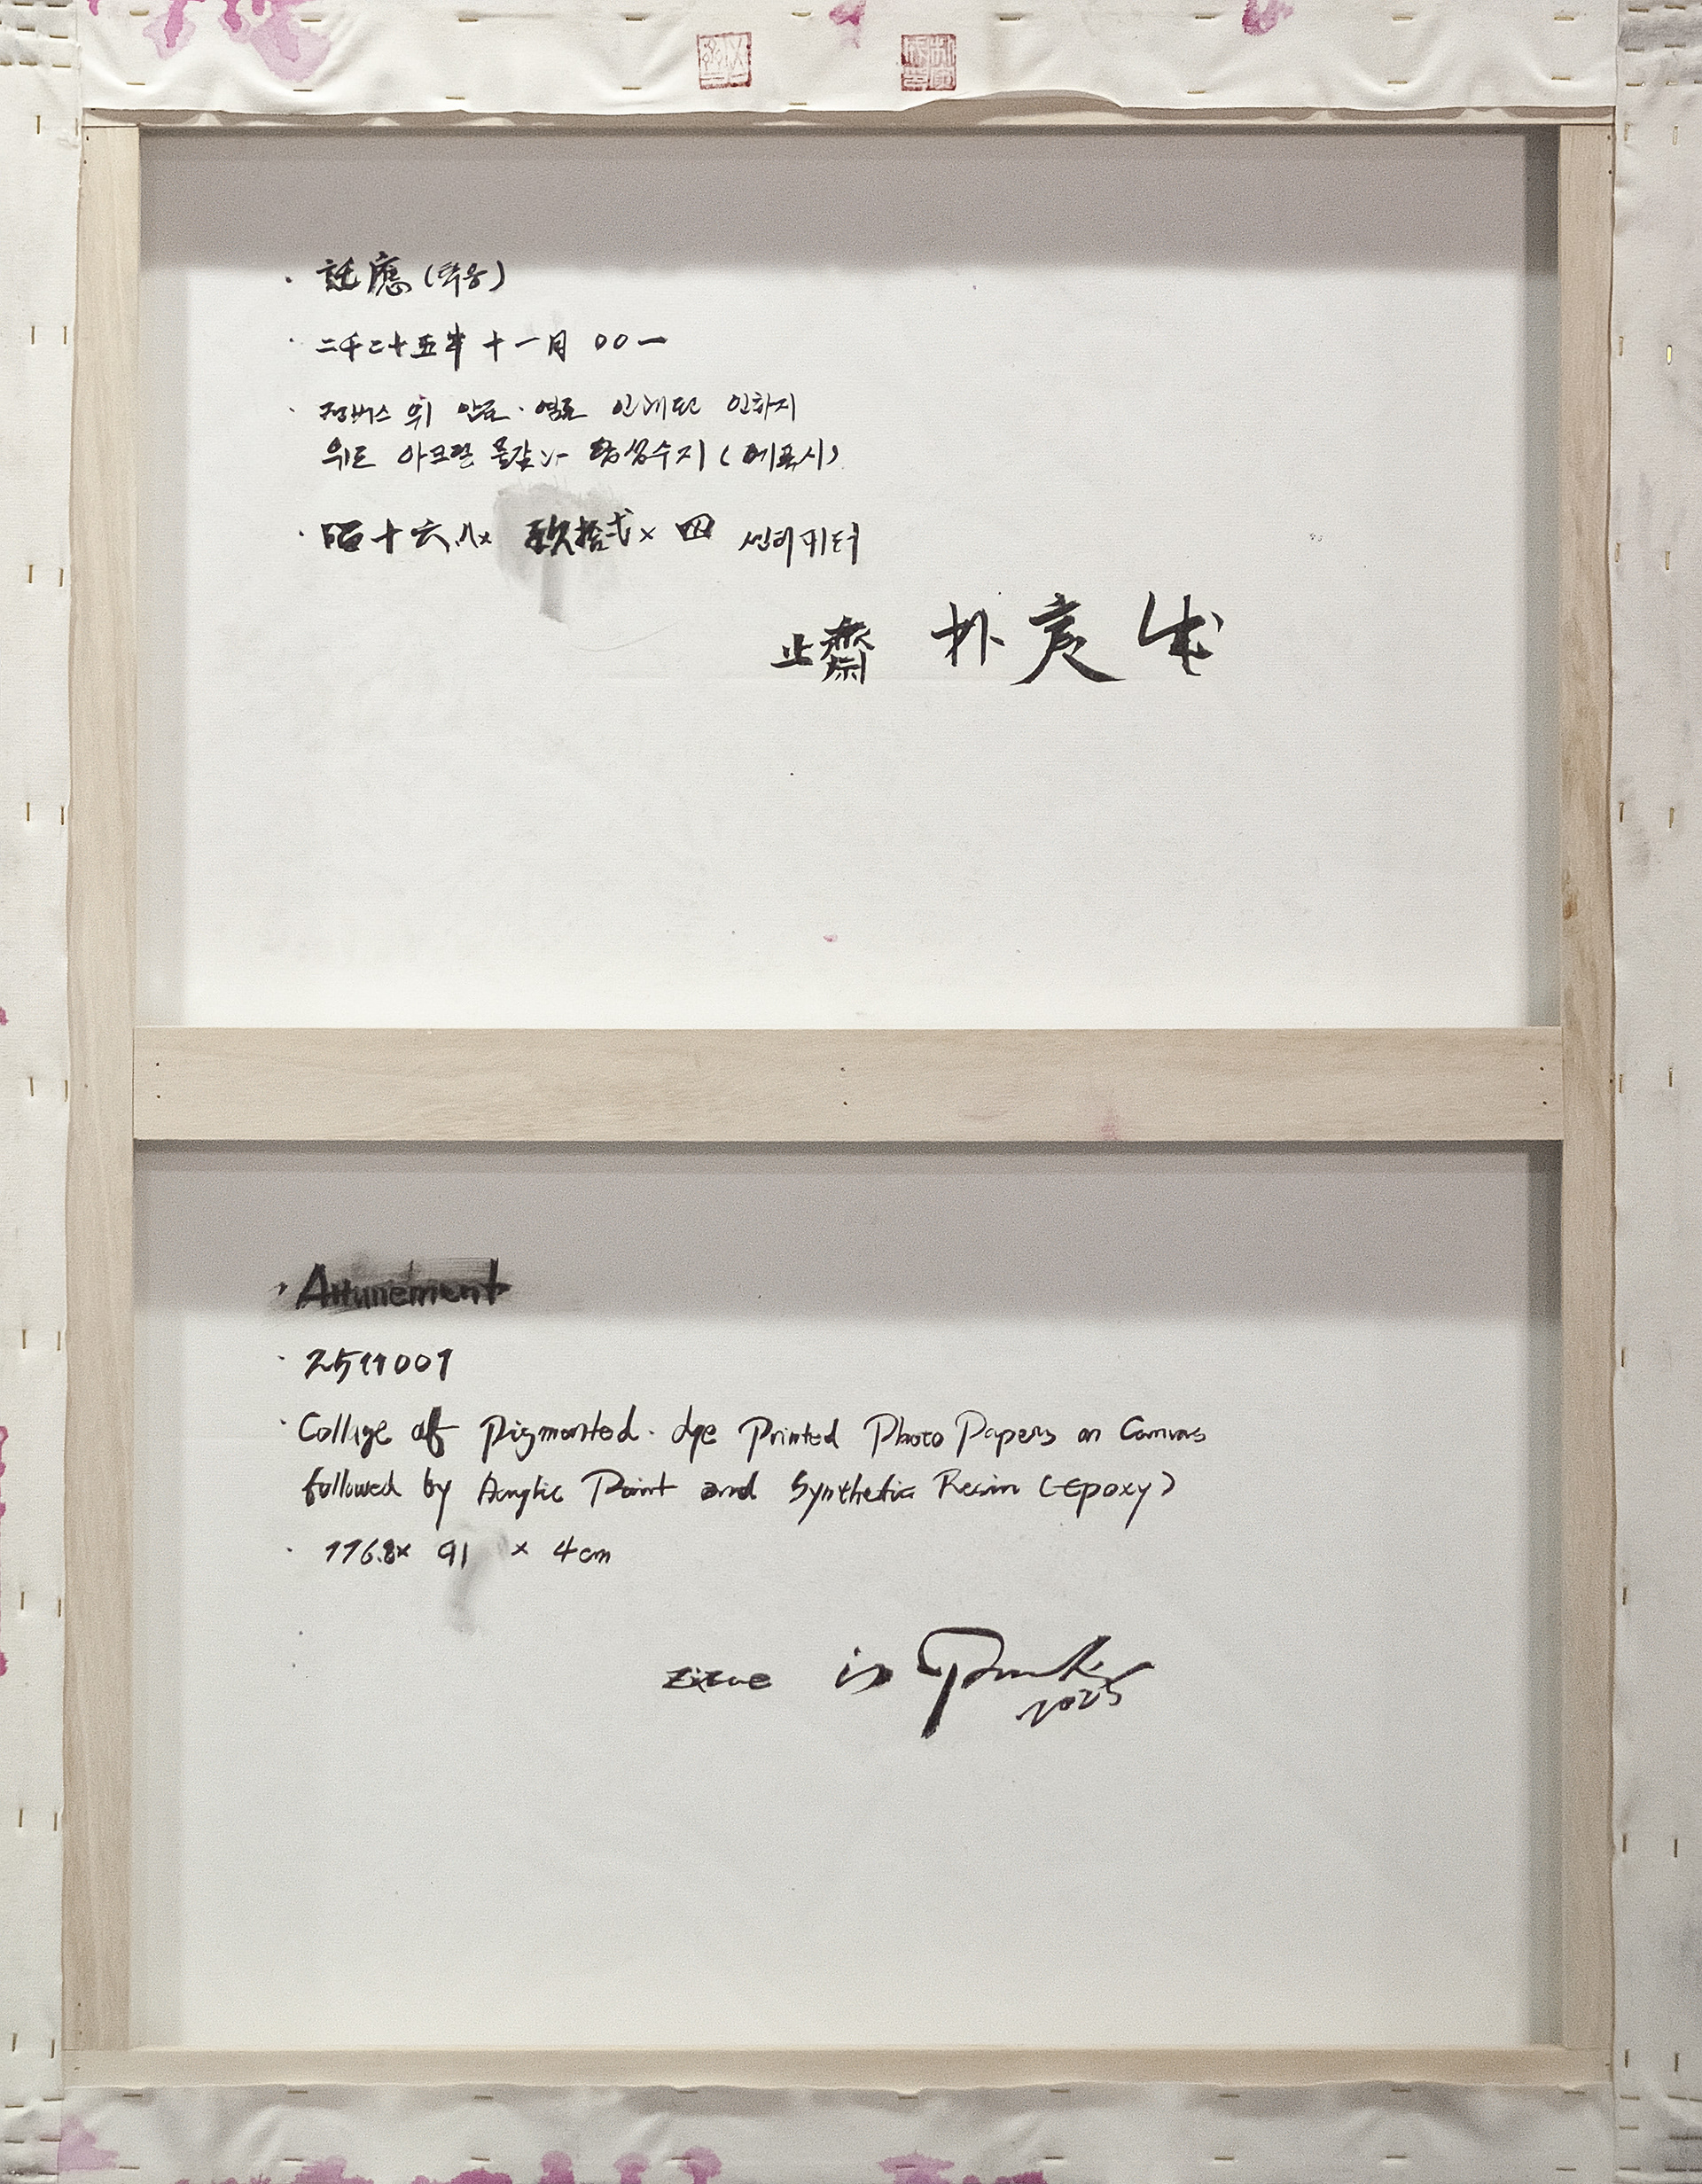 · 託應 (탁응)
· 二千二十五年 十一月 00一
· 캔버스 위 안료·염료 인쇄된 인화지
위로 아크릴 물감과 합성수지 (에폭시)
· 十六.八x 玖拾 x 四 센티미터
止齋 朴 成
· Attunement
· 2511001
· Collage of Pigmented·dye Printed Photo Papers on Canvas
followed by Acrylic Paint and Synthetic Resin (Epoxy)
· 116.8x 91 x 4cm
is Park
2025